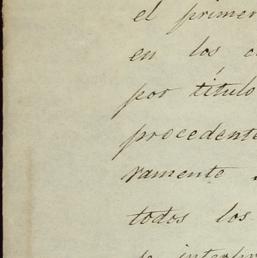 el primer
en los c
por título
procedente
ramente
todos los
se interpr